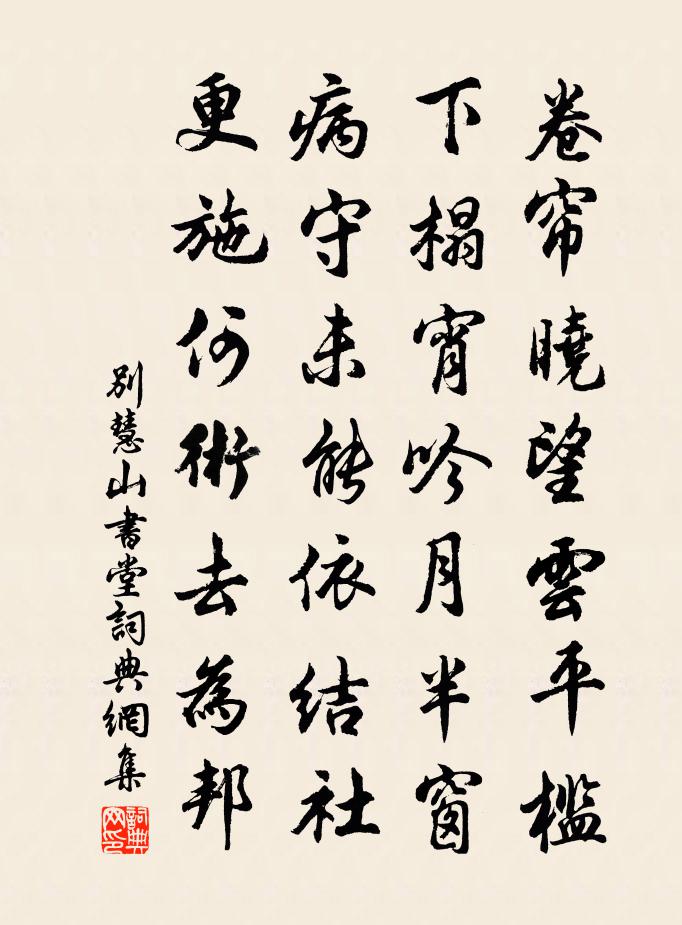 卷帘曉望雲平檻
下榻宵吟月半窗
病守未能依結社
更施何術去為邦
別慧山書堂詞典網集
詞典
网印